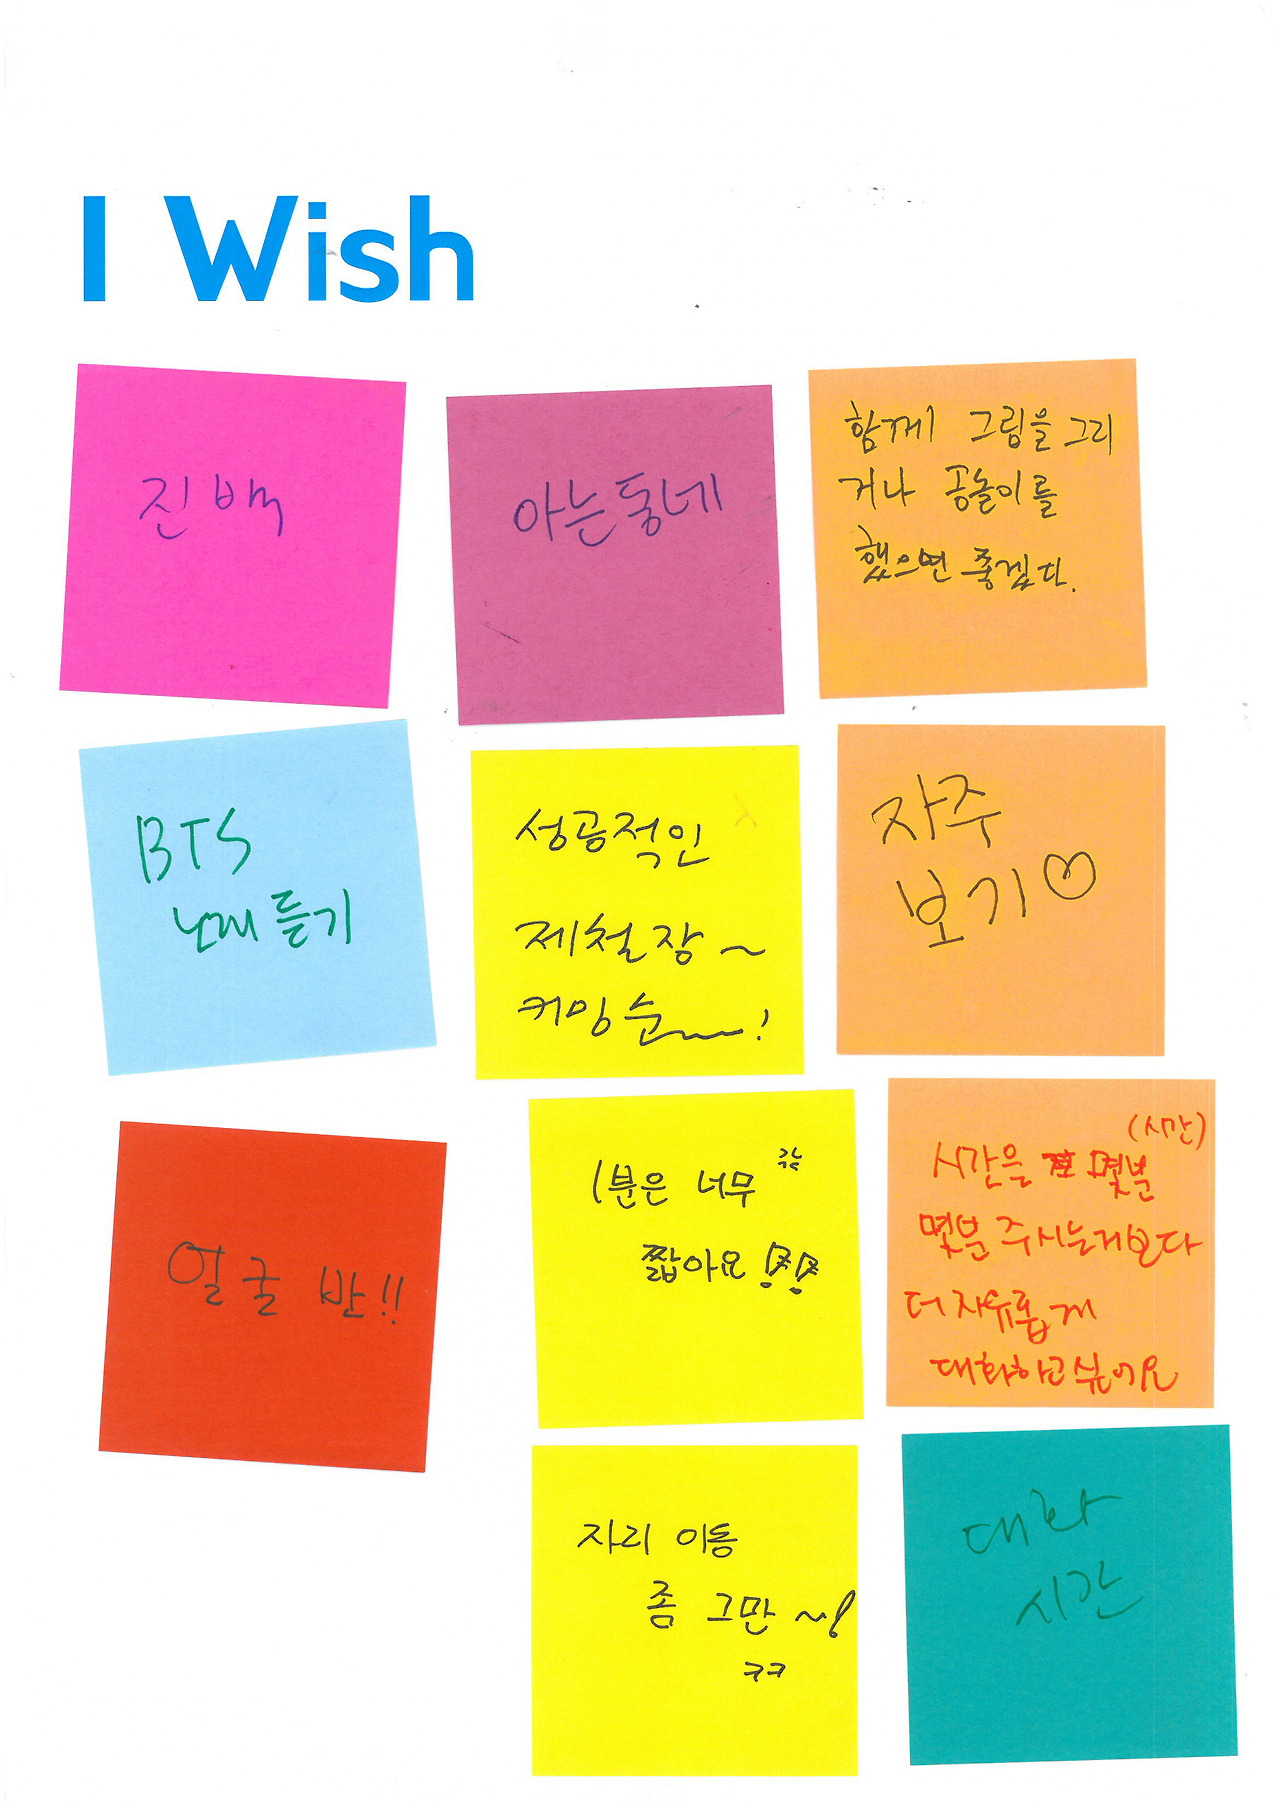 I Wish
진 백
아는동네
함께 그림을 그리
거나 공놀이를
했으면 좋겠다.
BTS
노래 듣기
성공적인
제철장~
커밍 순~!
자주
보기♡
얼굴 반!!
1분은 너무
짧아요!!
(시간)
시간을 몇분
몇분 주시는거보다
더 자유롭게
대화하고싶어요
자리 이동
좀 그만~!
ㅋㅋ
대화
시간